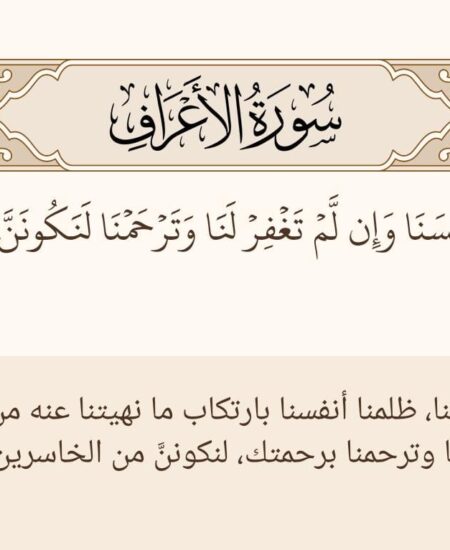 سُورَةُ الأَعْرَافِ
سَنَا وَإِن لَّمۡ تَغۡفِرۡ لَنَا وَتَرۡحَمۡنَا لَنَكُونَنَّ
نا، ظلمنا أنفسنا بارتكاب ما نهيتنا عنه من
ا وترحمنا برحمتك، لنكوننَّ من الخاسرين